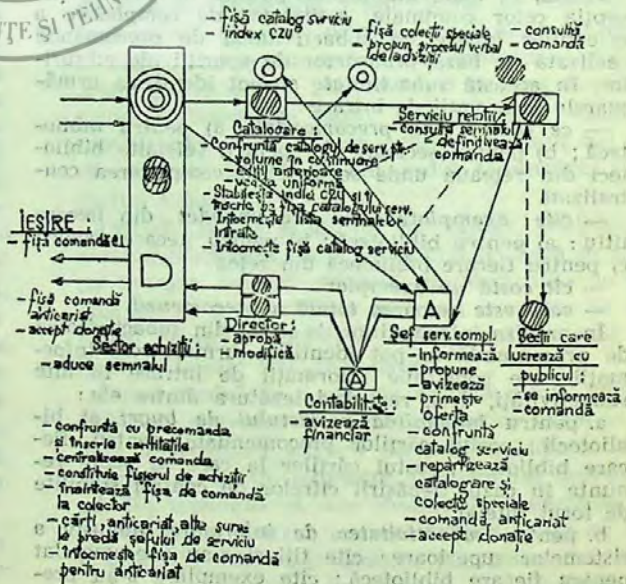 ȚE ȘI TEHN
- fișă catalog serviciu
index CZU
- fișă colecții speciale
- propun. procesul verbal
de achiziții
- consultă
- comandă
Catalogare :
- Confruntă catalogul de serv. pt.
volume în continuare
- ediții anterioare
- vedeta uniformă
- Stabilește indice CZU și îl
înscrie pe fișa catalogului serv.
- Întocmește lista semnalelor
intrate
- Întocmește fișă catalog serviciu
Serviciu relații :
- consultă semnalul
- definitivează
comanda
IEȘIRE :
- fișă comandă EL
- fișă comandă
anticariat
- accept donație
Sector achiziții :
- aduce semnalul
Director :
- aprobă
- modifică
A
A
Contabilitate :
- avizează
financiar
Șef serv. compl.
- informează
- propune
- avizează
- primește
oferta
- confruntă
catalog serviciu
- repartizează
catalogare și
colecții speciale
- comandă anticariat
- accept donație
Secții care
lucrează cu
publicul :
- se informează
- comandă
- confruntă cu precomanda
și înscrie cantitățile
- centralizează comanda
- constituie fișierul de achiziții
- înaintează fișa de comandă
la colector
- cărți, anticariat, alte surse
le predă șefului de serviciu
- întocmește fișa de comandă
pentru anticariat